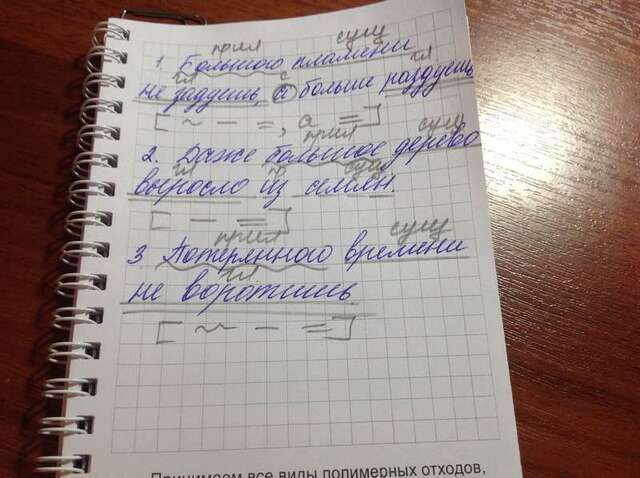 прил сущ
1. Большого пламени
гл с гл
не задуешь, а больше раздуешь
[ ~ — =, а = ]
прил сущ
2. Даже большое дерево
гл пр сущ
выросло из семян.
[ — = ]
прил сущ
3 Потерянного времени
гл
не воротишь
[ ~ — = ]
Принимаем все виды полимерных отходов,